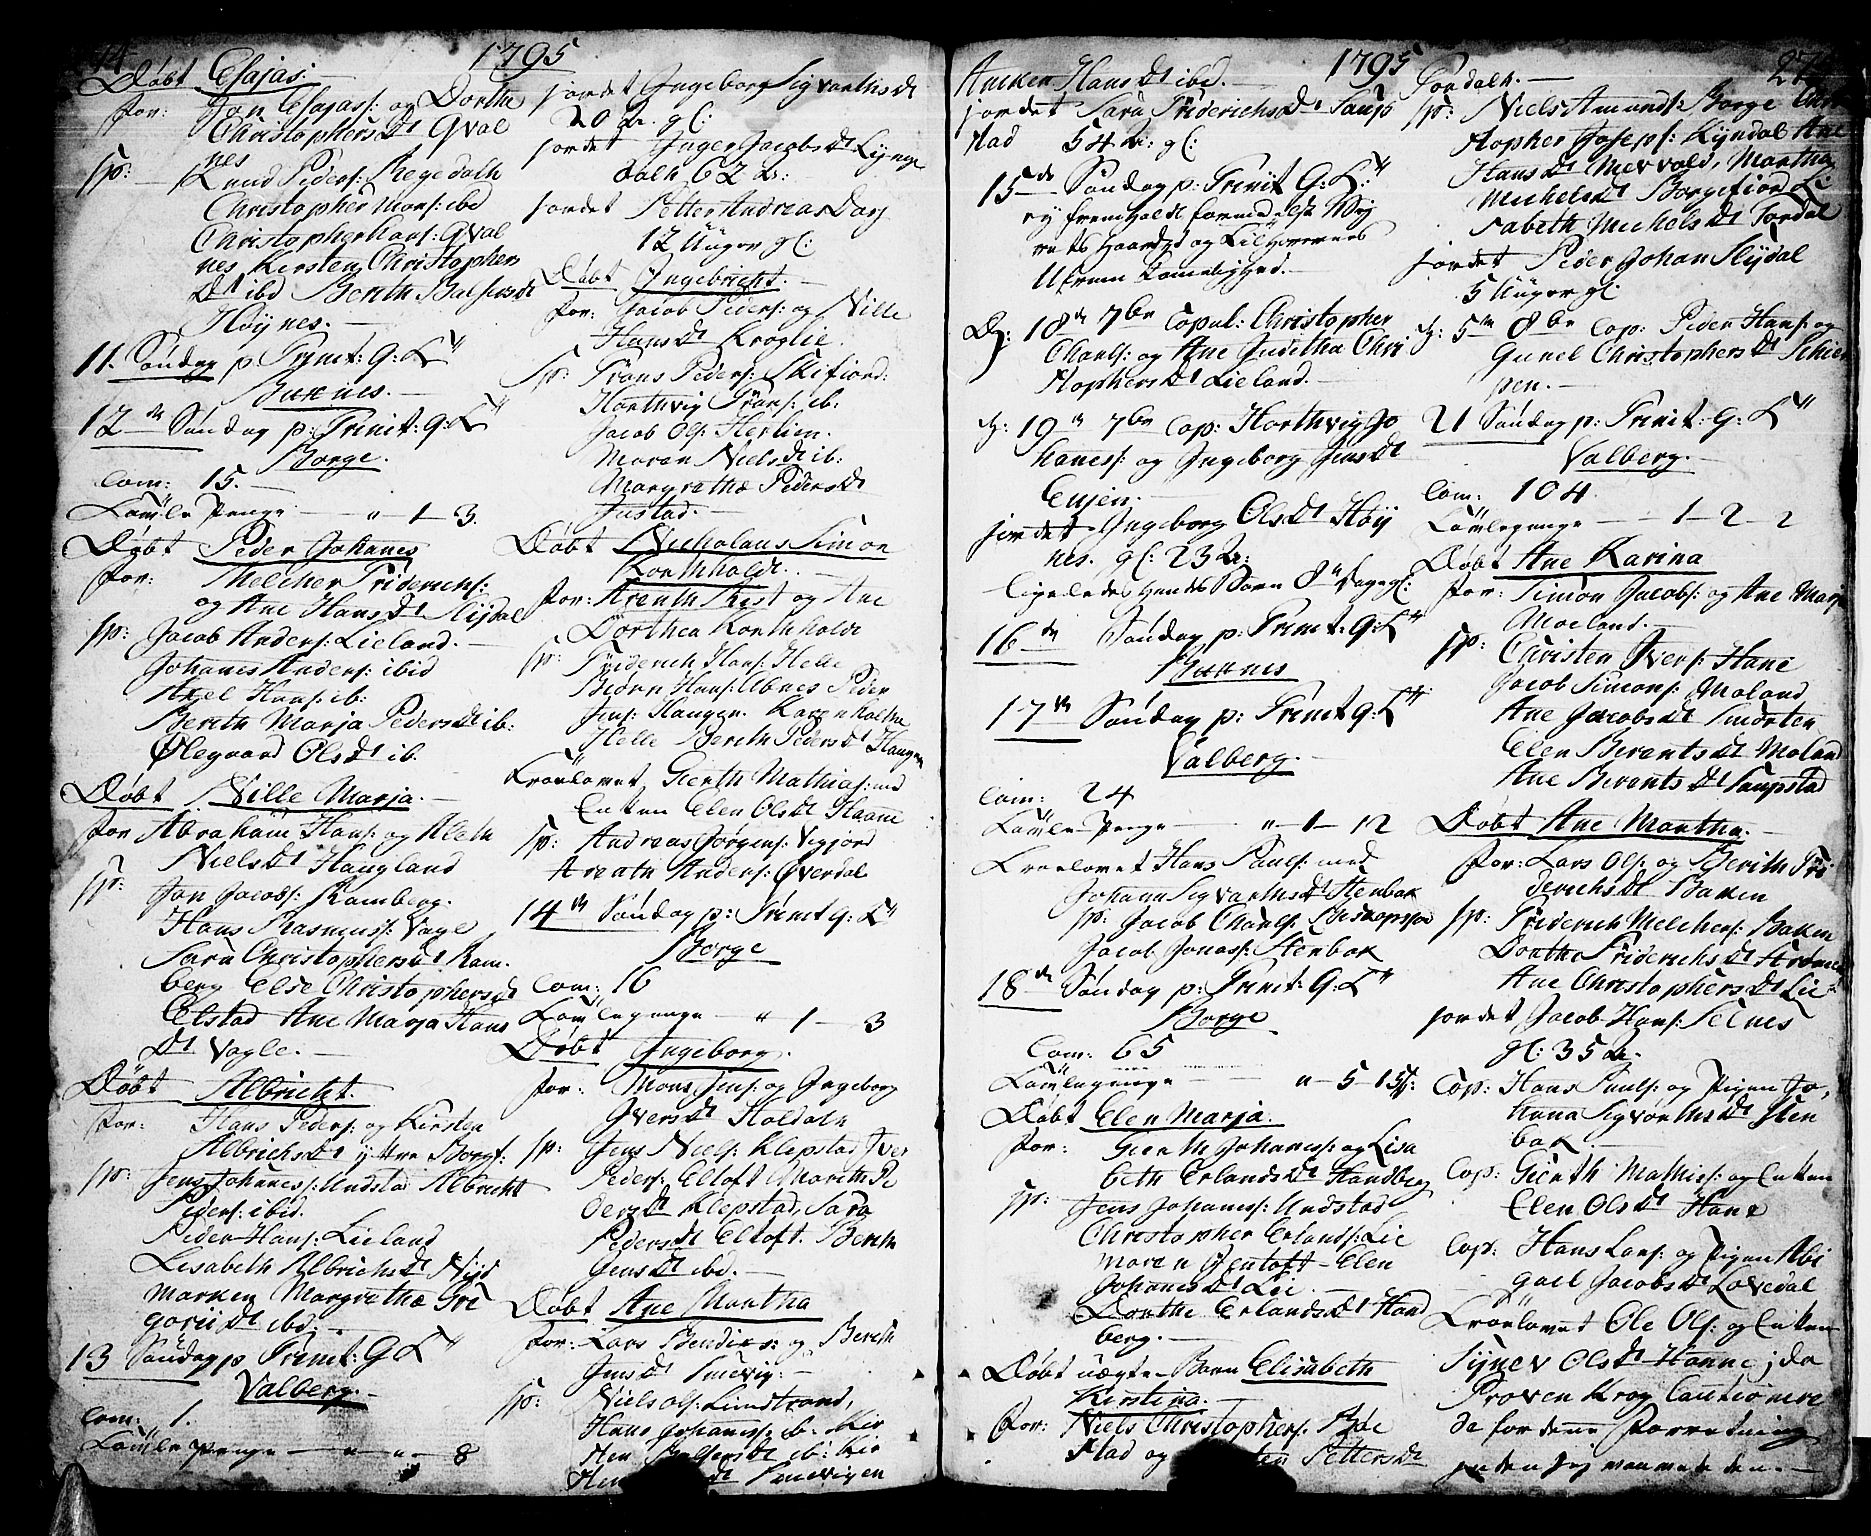 44
1795
Døbt Esajas:
For: Jon Esajas: og Dorthe
Christophers Dt Qval
nes
Sp: Knud Peders: Regedalh
Christopher Mons: ibd
Christopher Hans: Qval
nes Kirsten Christophers
Dt ibd Berith Balsersdt
Høynes.
11. Søndag p Trint: G: L"
Buxnes.
12te Søndag p: Trinit: G: L"
Borge.
Com: 15.
Tavle Penge — " — 1 — 3.
Døbt Peder Johanes
For: Melcher Friderichs:
og Ane Hans Dt Slÿdal
Sp: Jacob Anders: Lieland.
Johanes Anders: ibid
Axel Hans: ib:
Berith Marja Peders Dt ib:
Olegaard Ols Dt ib.
Døbt Nille Marja.
For Abraham Hans: og Aleth
Niels Dt Haugland
Sp: Jon Jacobs: Ramberg.
Hans Rasmus: Vagle
Sara Christophersdt Ram
berg Else Christophersdt
Elstad Ane Marja Hans
Dt Vagle.
Døbt Albricht.
For: Hans Peders: og Kirsten
Albrichs Dt ÿttre Borgf:
Sp: Jens Johanes: Undstad Albricht
Peders: ibid.
Peder Hans: Lieland
Lisabeth Albrichs Dt Nÿd
marken Margrethæ Gre
gorii Dt ibd.
13 Søndag p Trinit: G L"
Valberg.
Com: 1.
Tavle Penge — " — " — 8
Jordet Ingeborg Sigvarths dt
20 Ar. gl:
Jordet Inger Jacobs Dt Lÿnge
dalh 62 Ar:
Jordet Petter Andreas Dorj
12 Uuger gl:
Døbt Ingebricht.
For: Jacob Peders: og Nille
Hans Dt Kroglie.
Sp: Frans Peders: Skifiord:
Horthvig Frans: ib:
Jacob Ols: Hertien.
Maren Niels dt ib:
Margrethæ Peders Dt
Justad.
Døbt Nicholaus Simon
Korthholdt.
For: Arenth Krist og Ane
Dorthea Korthholdt
Sp: Friderich Hans: Helle
Biørn Hans: Abnes Peder
Jens: Haugen Karen Holm
Helle Berith Peders Dt Haugen
Troelovet Gierth Mathias: med
Enken Elen Ols Dt Haane
Sp: Andreas Jørgens: Vigjord
Areath Anders: Øverdal
14de Søndag p: Trinit g: L"
Borge
Com: 16
Tavlepenge — " 1 — 3
Døbt Ingeborg.
For: Mons Jens: og Ingeborg
Ivers Dt Holdalh
Sp: Jens Niels: Klepstad Iver
Peders: Eltoft Marith Pe
ders Dt Klepstad, Sara
Peders Dt Eltoft. Berith
Jens Dt ibd.
Døbt Ane Martha
For: Lars Bendix: og Berith
Jens Dt Smevig.
Sp: Niels Ols: Limstrand,
Hans Johanes: ib. Kir
sten Balsers Dt ib: Kir
sten Dt Smevigen
1795
Ancken Hans Dt ibd.
Jordet Sara Friderichs Dt Saups
stad 54 Ar: gl:
15de Søndag p: Trinit G: L:"
eÿ fremholdt formedelst Veÿ
rets haardhed og
Ufrem komelighed.
D: 18de 7br Copul: Christopher
Charls: og Ane Juditha Chri
stophers Dt Lieland.
D: 19de 7br Cop: Horthvig Jo
hanes: og Ingeborg Jens Dt
Eujen.
Jordet Ingeborg Ols Dt Høÿ
nes. gl: 23 Ar:
ligeledes hendes Barn 8te Dage gl:
16de Søndag p: Trinit: G: L"
Buxnes
17de Søndag p: Trinit G: L"
Valberg.
Com: 24
Tavle Penge — " — 1 — 12
Troelovet Hans Pauls: med
Johana Sigvarths Dt Stenbak
Sp: Jacob Charls:
Jacob Jonas: Stenbak
18de Søndag p: Trinit: G: L"
Borge
Com: 65
Tavlepenge — " — 5 — 15 s:
Døbt Elen Marja.
For: Gierth Johanes: og Lisa
beth Erlands Dt Handberg
Sp: Jens Johanes: Undstad
Christopher Erlands: Lie
Maren Øentoft Elen
Johanes Dt Lie
Dorthe Erlands Dt Hand
berg.
Døbt uægte Barn Elisabeth
Kirstina.
For: Niels Christophers: Bøe
stad og Petters Dt
27
Tordalh.
Sp: Niels Amunds: Borge Chri
stopher Joseps: Kÿndal Ane
Hans Dt Mervold, Martha
Michels Dt Borgefiord Li
sabeth Michels Dt Tordal
Jordet Peder Johan Slÿdal
5 Uuger gl:
D: 5te 8br Cop: Peder Hans: og
Gunel Christophers Dt Schier
pen.
21 Søndag p: Trinit: G: L"
Valberg.
Com: 104.
Tavlepenge — 1 — 2 — 2
Døbt Ane Karina
For: Simon Jacobs: og Ane Marja
Moeland.
Sp: Christen Ivers: Hane
Jacob Simons: Moland
Ane Jacobs Dt Smorten
Elen Berants Dt Moland
Ane Berants Dt Saupstad
Døbt Ane Martha.
For: Lars Ols: og Berith Fri
derichs Dt Baken
Sp: Friderich Melchers: Baken
Dorthe Friderichs Dt
Ane Christophers Dt Lie
Jordet Jacob Hans: Selnes
gl: 35 Ar.
Cop: Hans Pauls: og Pigen Jo,
hana Sigvarths Dt Sten
bak.
Cop: Gierth Mathis: og Enken
Elen Ols Dt Hane
Cop: Hans Lars: og Pigen Abi
gael Jacobs Dt Løvedal
Troelovet Ole Ols: og Enken
Sÿnev Ols Dt Hanne; da
Proven Krog Cautionere
de for denne Forretning